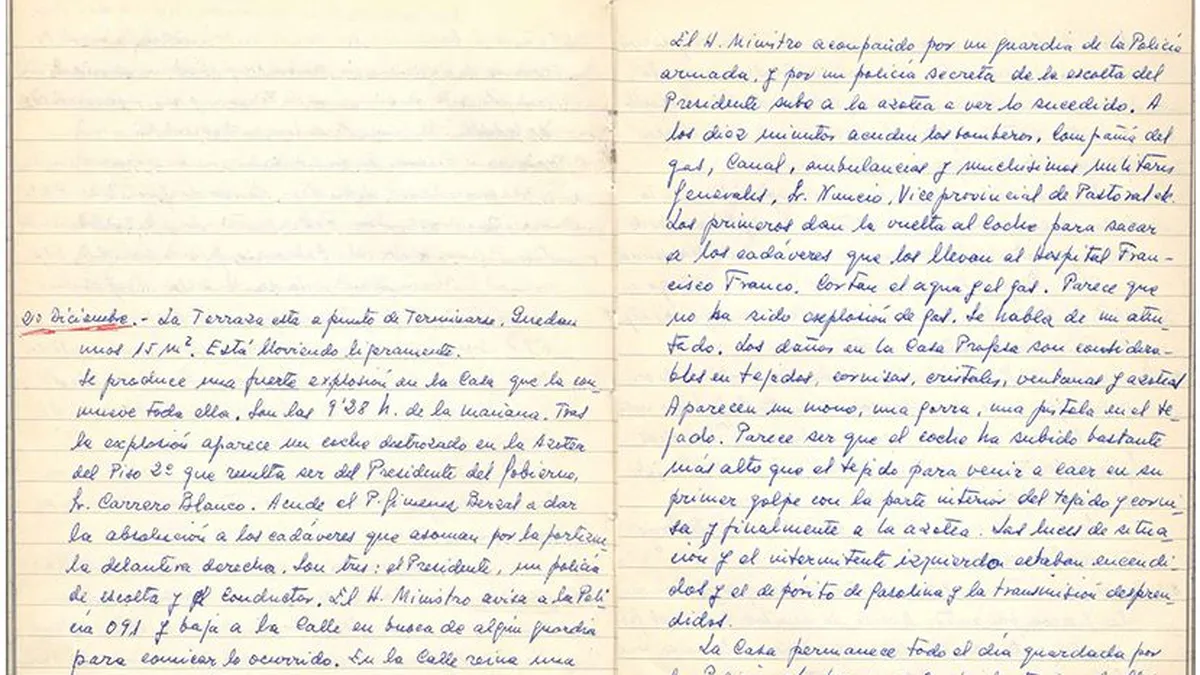 20 Diciembre.- La Terraza esta a punto de Terminarse. Quedan
unos 15 m². Está lloviendo ligeramente.
Se produce una fuerte explosión en la Casa que la con
mueve toda ella. Son las 9'28 h. de la mañana. Tras
la explosión aparece un coche destrozado en la Azotea
del Piso 2º que resulta ser del Presidente del Gobierno,
Sr. Carrero Blanco. Acude el P. Jimenez Berzal a dar
la absolución a los cadáveres que asoman por la portezue
la delantera derecha. Son tres: el Presidente, un policía
de escolta y el conductor. El H. Ministro avisa a la Poli
cía 091 y baja a la Calle en busca de algún guardia
para comicar lo ocurrido. En la Calle reina una
El H. Ministro acompañdo por un guardia de la Policía
armada, y por un policía secreta de la escolta del
Presidente sube a la azotea a ver lo sucedido. A
los diez minutos acuden los bomberos, Compañía del
gas, Canal, ambulancias y muchísimos militares
Generales, Sr. Nuncio, Viceprovincial de Pastoral etc.
Los primeros dan la vuelta al Coche para sacar
a los cadáveres que los llevan al Hospital Fran-
cisco Franco. Cortan el agua y el gas. Parece que
no ha sido explosión de gas. Se habla de un aten-
tado. Los daños en la Casa Profesa son considera-
bles en tejados, cornisas, cristales, ventanas y azoteas
Aparecen un mono, una gorra, una pistola en el te-
jado. Parece ser que el coche ha subido bastante
más alto que el tejado para venir a caer en su
primer golpe con la parte interior del tejado y corni-
sa y finalmente a la azotea. Las luces de situa-
ción y el intermitente izquierdo estaban encendi-
dos y el depósito de gasolina y la transmisión despren-
didos.
La Casa permanece todo el día guardada por